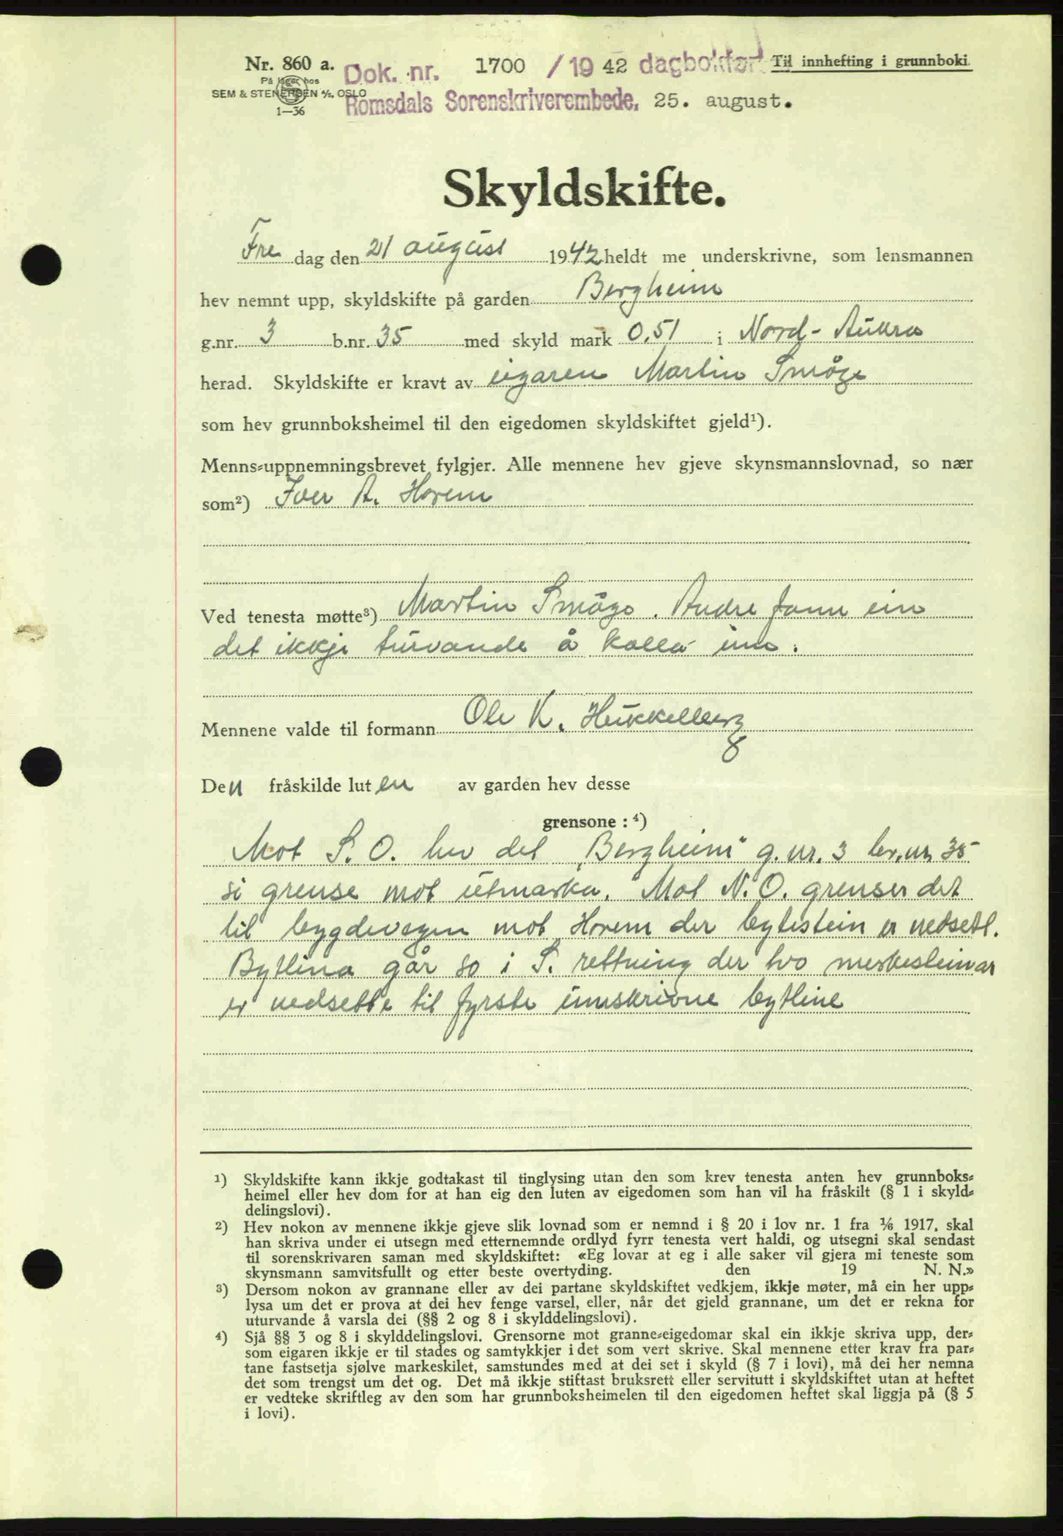 Nr. 860 a.
På lager hos
SEM & STENERSEN A/S, OSLO
1—36
Dok. nr. 1700 / 19 42 dagbokført
Romsdals Sorenskriverembede, 25. august.
Til innhefting i grunnboki.
Skyldskifte.
Fre dag den 21 august 1942 heldt me underskrivne, som lensmannen
hev nemnt upp, skyldskifte på garden Bergheim
g.nr. 3 b.nr. 35 med skyld mark 0,51 i Nord-Aukra
herad. Skyldskifte er kravt av eigaren Martin Småge
som hev grunnboksheimel til den eigedomen skyldskiftet gjeld¹).
Menns-uppnemningsbrevet fylgjer. Alle mennene hev gjeve skynsmannslovnad, so nær
som²) Iver A. Horem
Ved tenesta møtte³) Martin Småge. Andre fann ein
det ikkje turvande å kalla inn.
Mennene valde til formann Ole K. Hukkelberg
Den fråskilde luten av garden hev desse
grensone : ⁴)
Mot S. O. hev det "Bergheim" g. nr. 3 br. nr. 35
si grense mot utmarka. Mot N. O. grenser det
til bygdevegen mot Horem der bytestein er nedsett.
Bytlina går so i S. rettning der tvo merkesteinar
er nedsette til fyrste innskrivne bytline
¹) Skyldskifte kann ikkje godtakast til tinglysing utan den som krev tenesta anten hev grunnboks-
heimel eller hev dom for at han eig den luten av eigedomen som han vil ha fråskilt (§ 1 i skyld-
delingslovi).
²) Hev nokon av mennene ikkje gjeve slik lovnad som er nemnd i § 20 i lov nr. 1 fra 1/6 1917, skal
han skriva under ei utsegn med etternemnde ordlyd fyrr tenesta vert haldi, og utsegni skal sendast
til sorenskrivaren saman med skyldskiftet: «Eg lovar at eg i alle saker vil gjera mi teneste som
skynsmann samvitsfullt og etter beste overtyding. den 19 N. N.»
³) Dersom nokon av grannane eller av dei partane skyldskiftet vedkjem, ikkje møter, må ein her upp-
lysa um det er prova at dei hev fenge varsel, eller, når det gjeld grannane, um det er rekna for
uturvande å varsla dei (§§ 2 og 8 i skylddelingslovi).
⁴) Sjå §§ 3 og 8 i skylddelingslovi. Grensorne mot granne-eigedomar skal ein ikkje skriva upp, der-
som eigaren ikkje er til stades og samtykkjer i det som vert skrive. Skal mennene etter krav fra par-
tane fastsetja sjølve markeskilet, samstundes med at dei set i skyld (§ 7 i lovi), må dei her nemna
det som trengst um det og. Det må ikkje stiftast bruksrett eller servitutt i skyldskiftet utan at heftet
er vedteke skriftleg av den som har grunnboksheimelen til den eigedomen heftet skal liggja på (§ 5
i lovi).